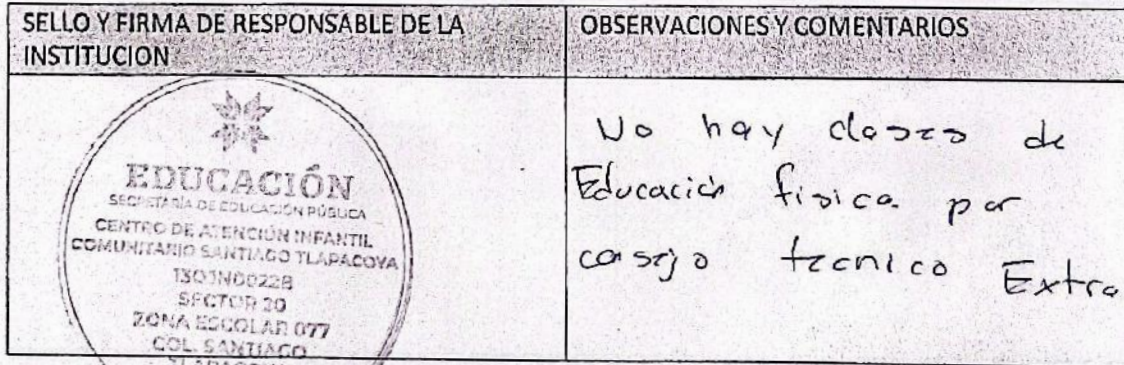 SELLO Y FIRMA DE RESPONSABLE DE LA
INSTITUCION
OBSERVACIONES Y COMENTARIOS
EDUCACIÓN
SECRETARÍA DE EDUCACIÓN PÚBLICA
CENTRO DE ATENCIÓN INFANTIL
COMUNITARIO SANTIAGO TLAPACOYA
SECTOR 20
ZONA ESCOLAR 077
COL. SANTIAGO
No hay clases de
Educación física por
consejo tecnico Extra